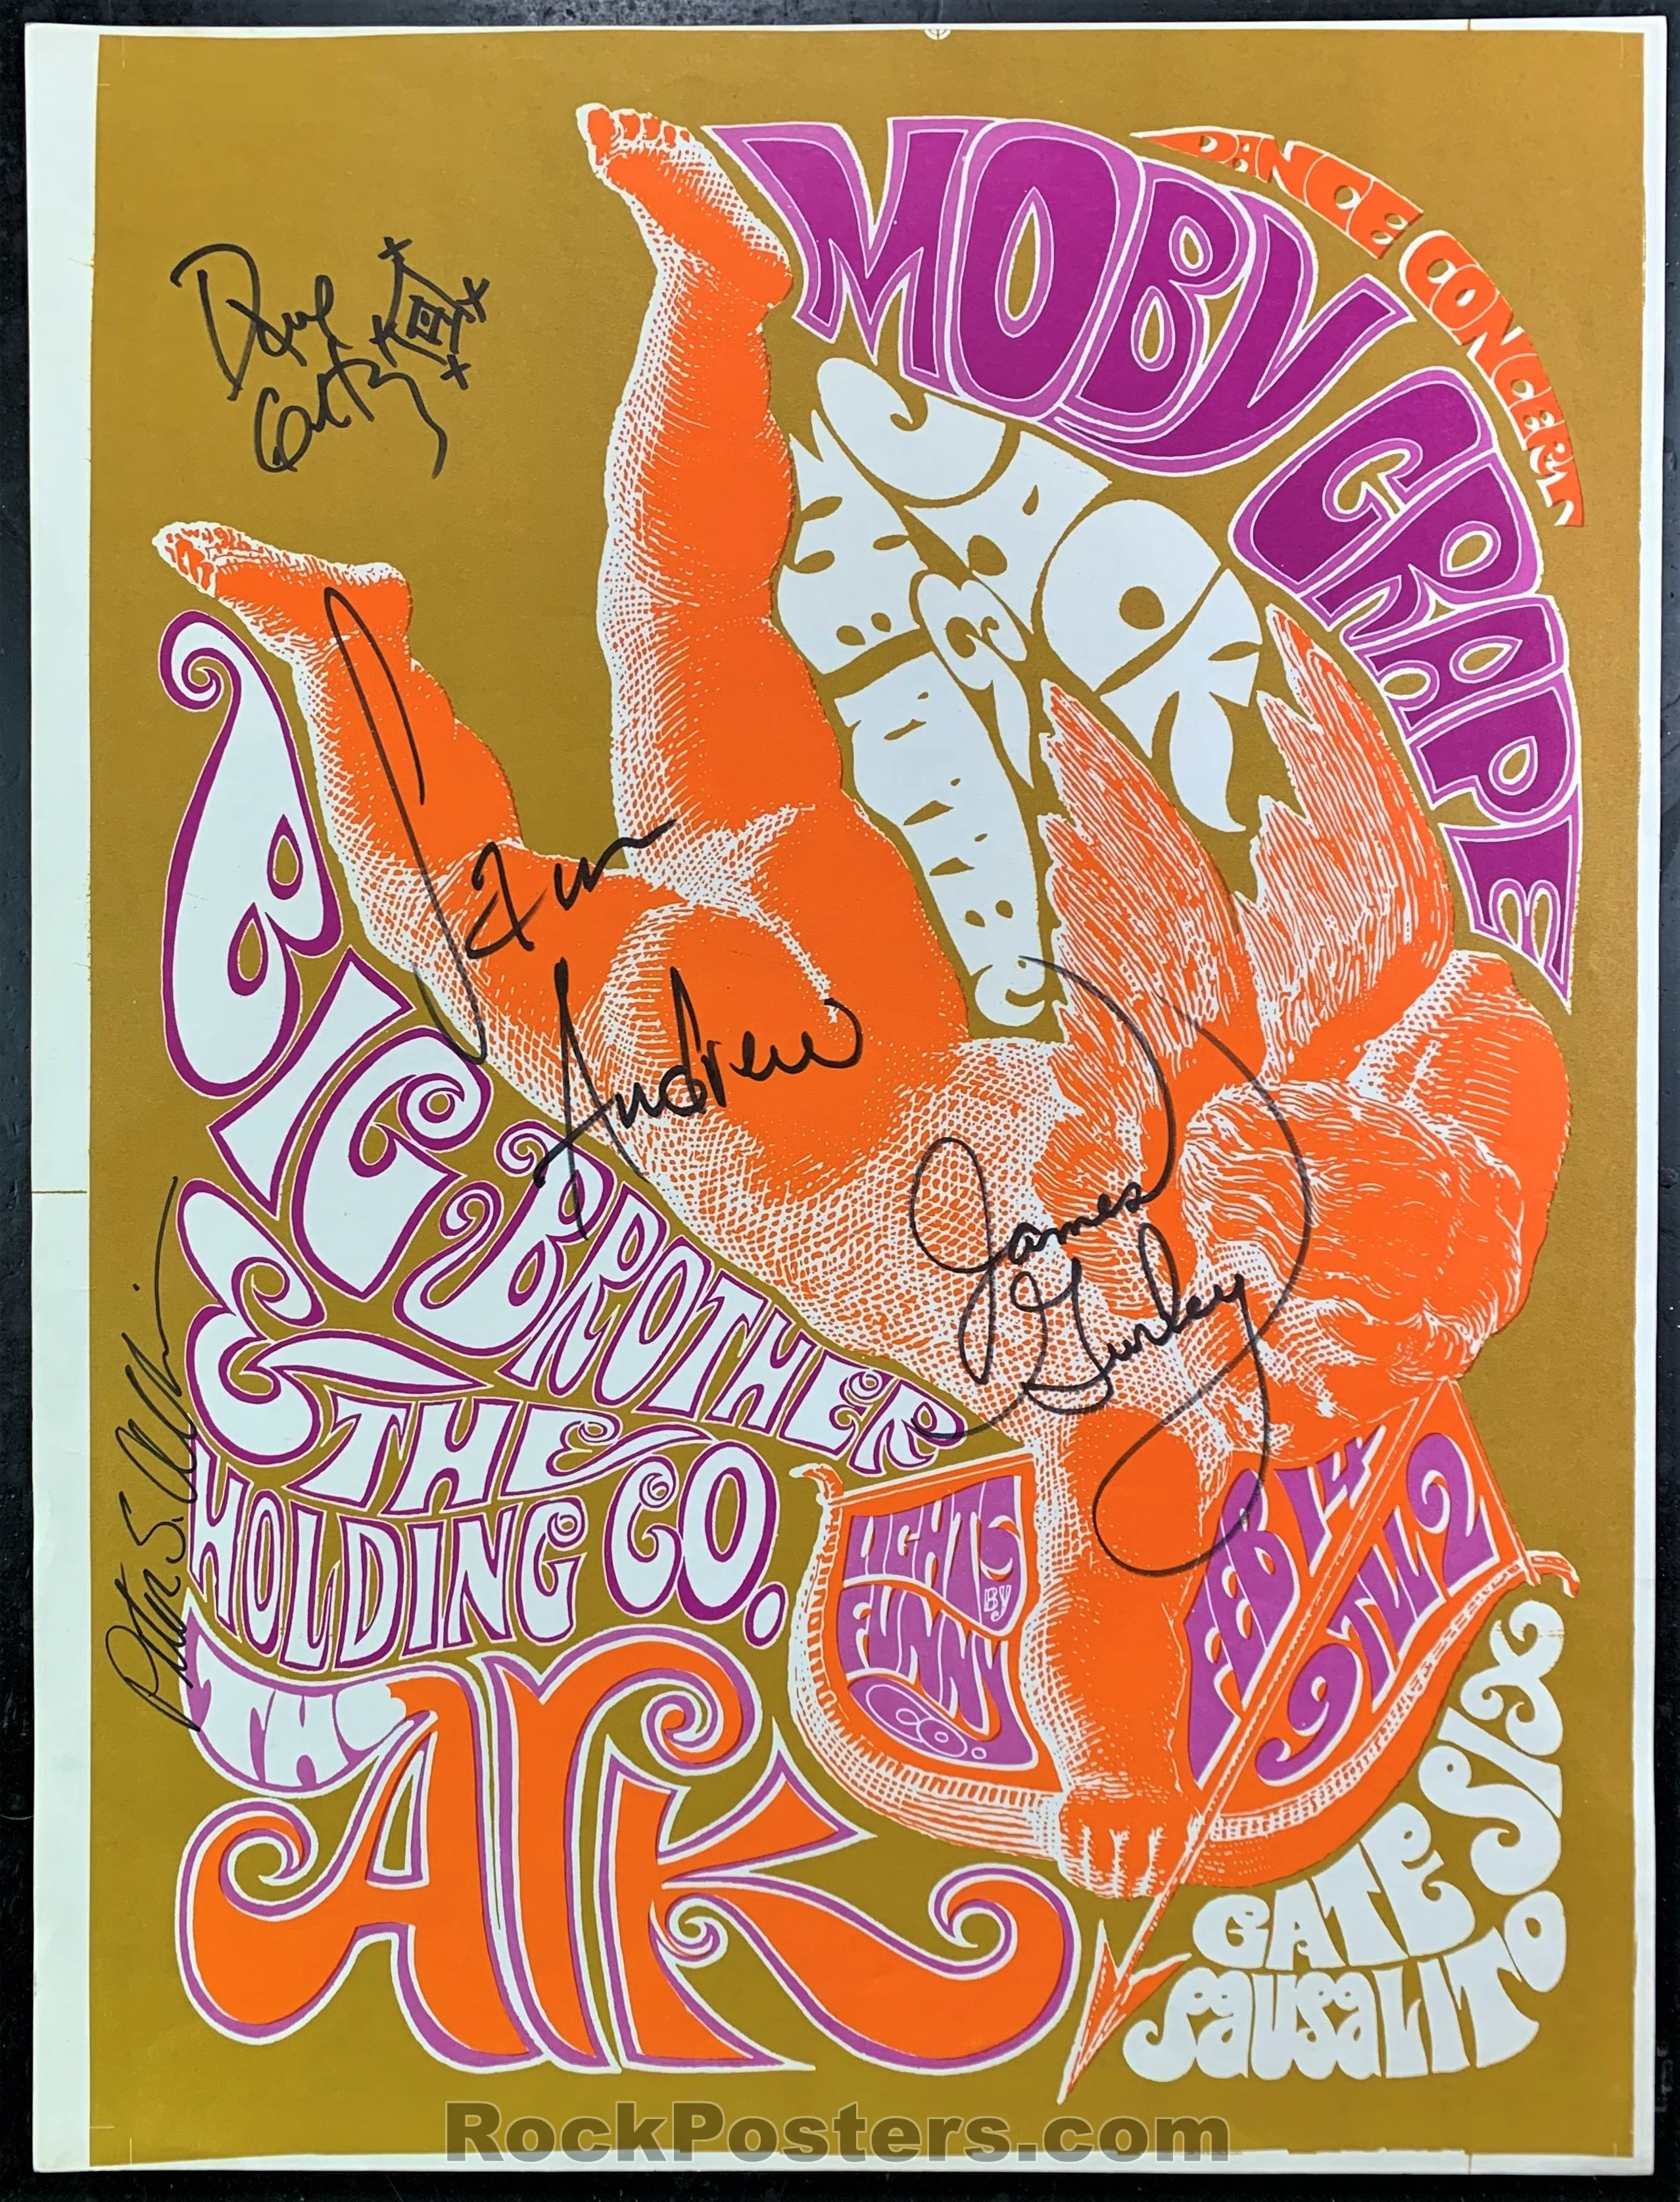 DANCE CONCERT
MOBY GRAPE
Dave
Getz
Sam
Andrew
James
Gurley
Peter S. Albin
BIG BROTHER
& THE
HOLDING CO.
THE
ARK
LIGHTS
BY
FUNNY
CO.
FEB 14
9 TILL 2
GATE SIX
SAUSALITO
RockPosters.com